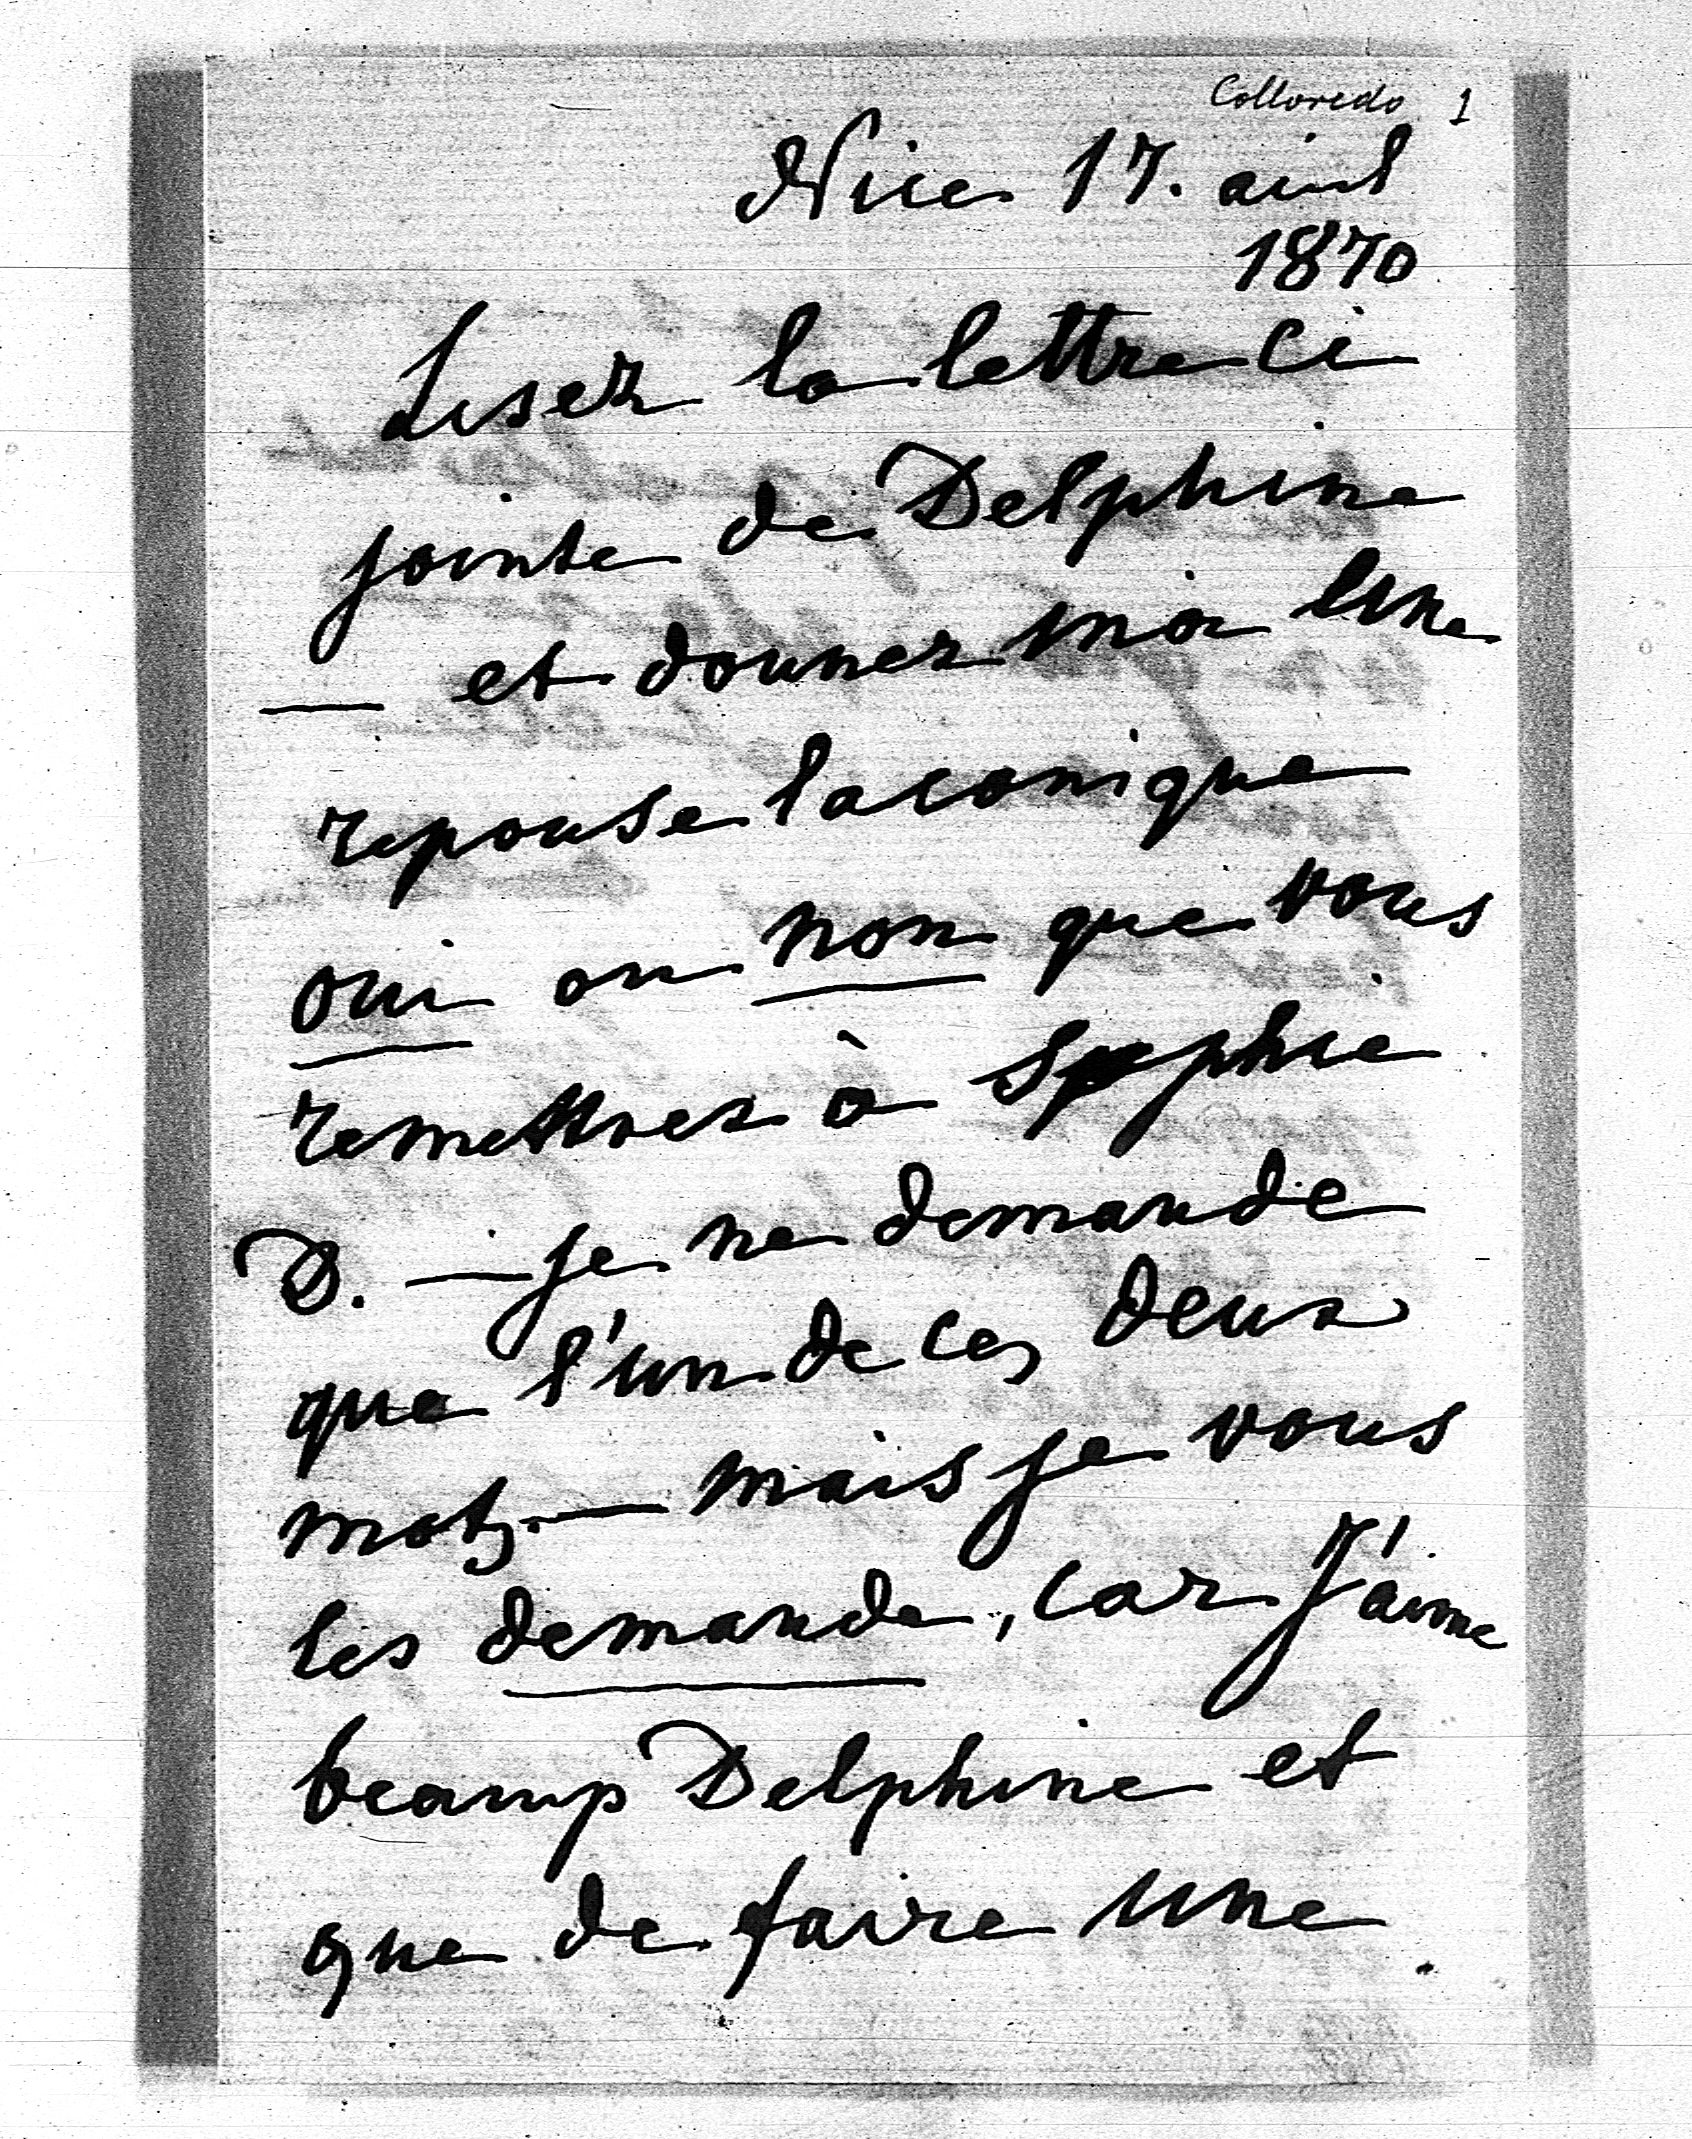 Colloredo 1
Nice 17. avril
1870
Lisez la lettre ci
jointe de Delphine
— et donnez moi une
reponse laconique
oui ou non que vous
remettrez à Sophie
D. — je ne demande
que l'un de ces deux
mots. — mais je vous
les demande, car j'aime
beaucup Delphine et
que de faire une